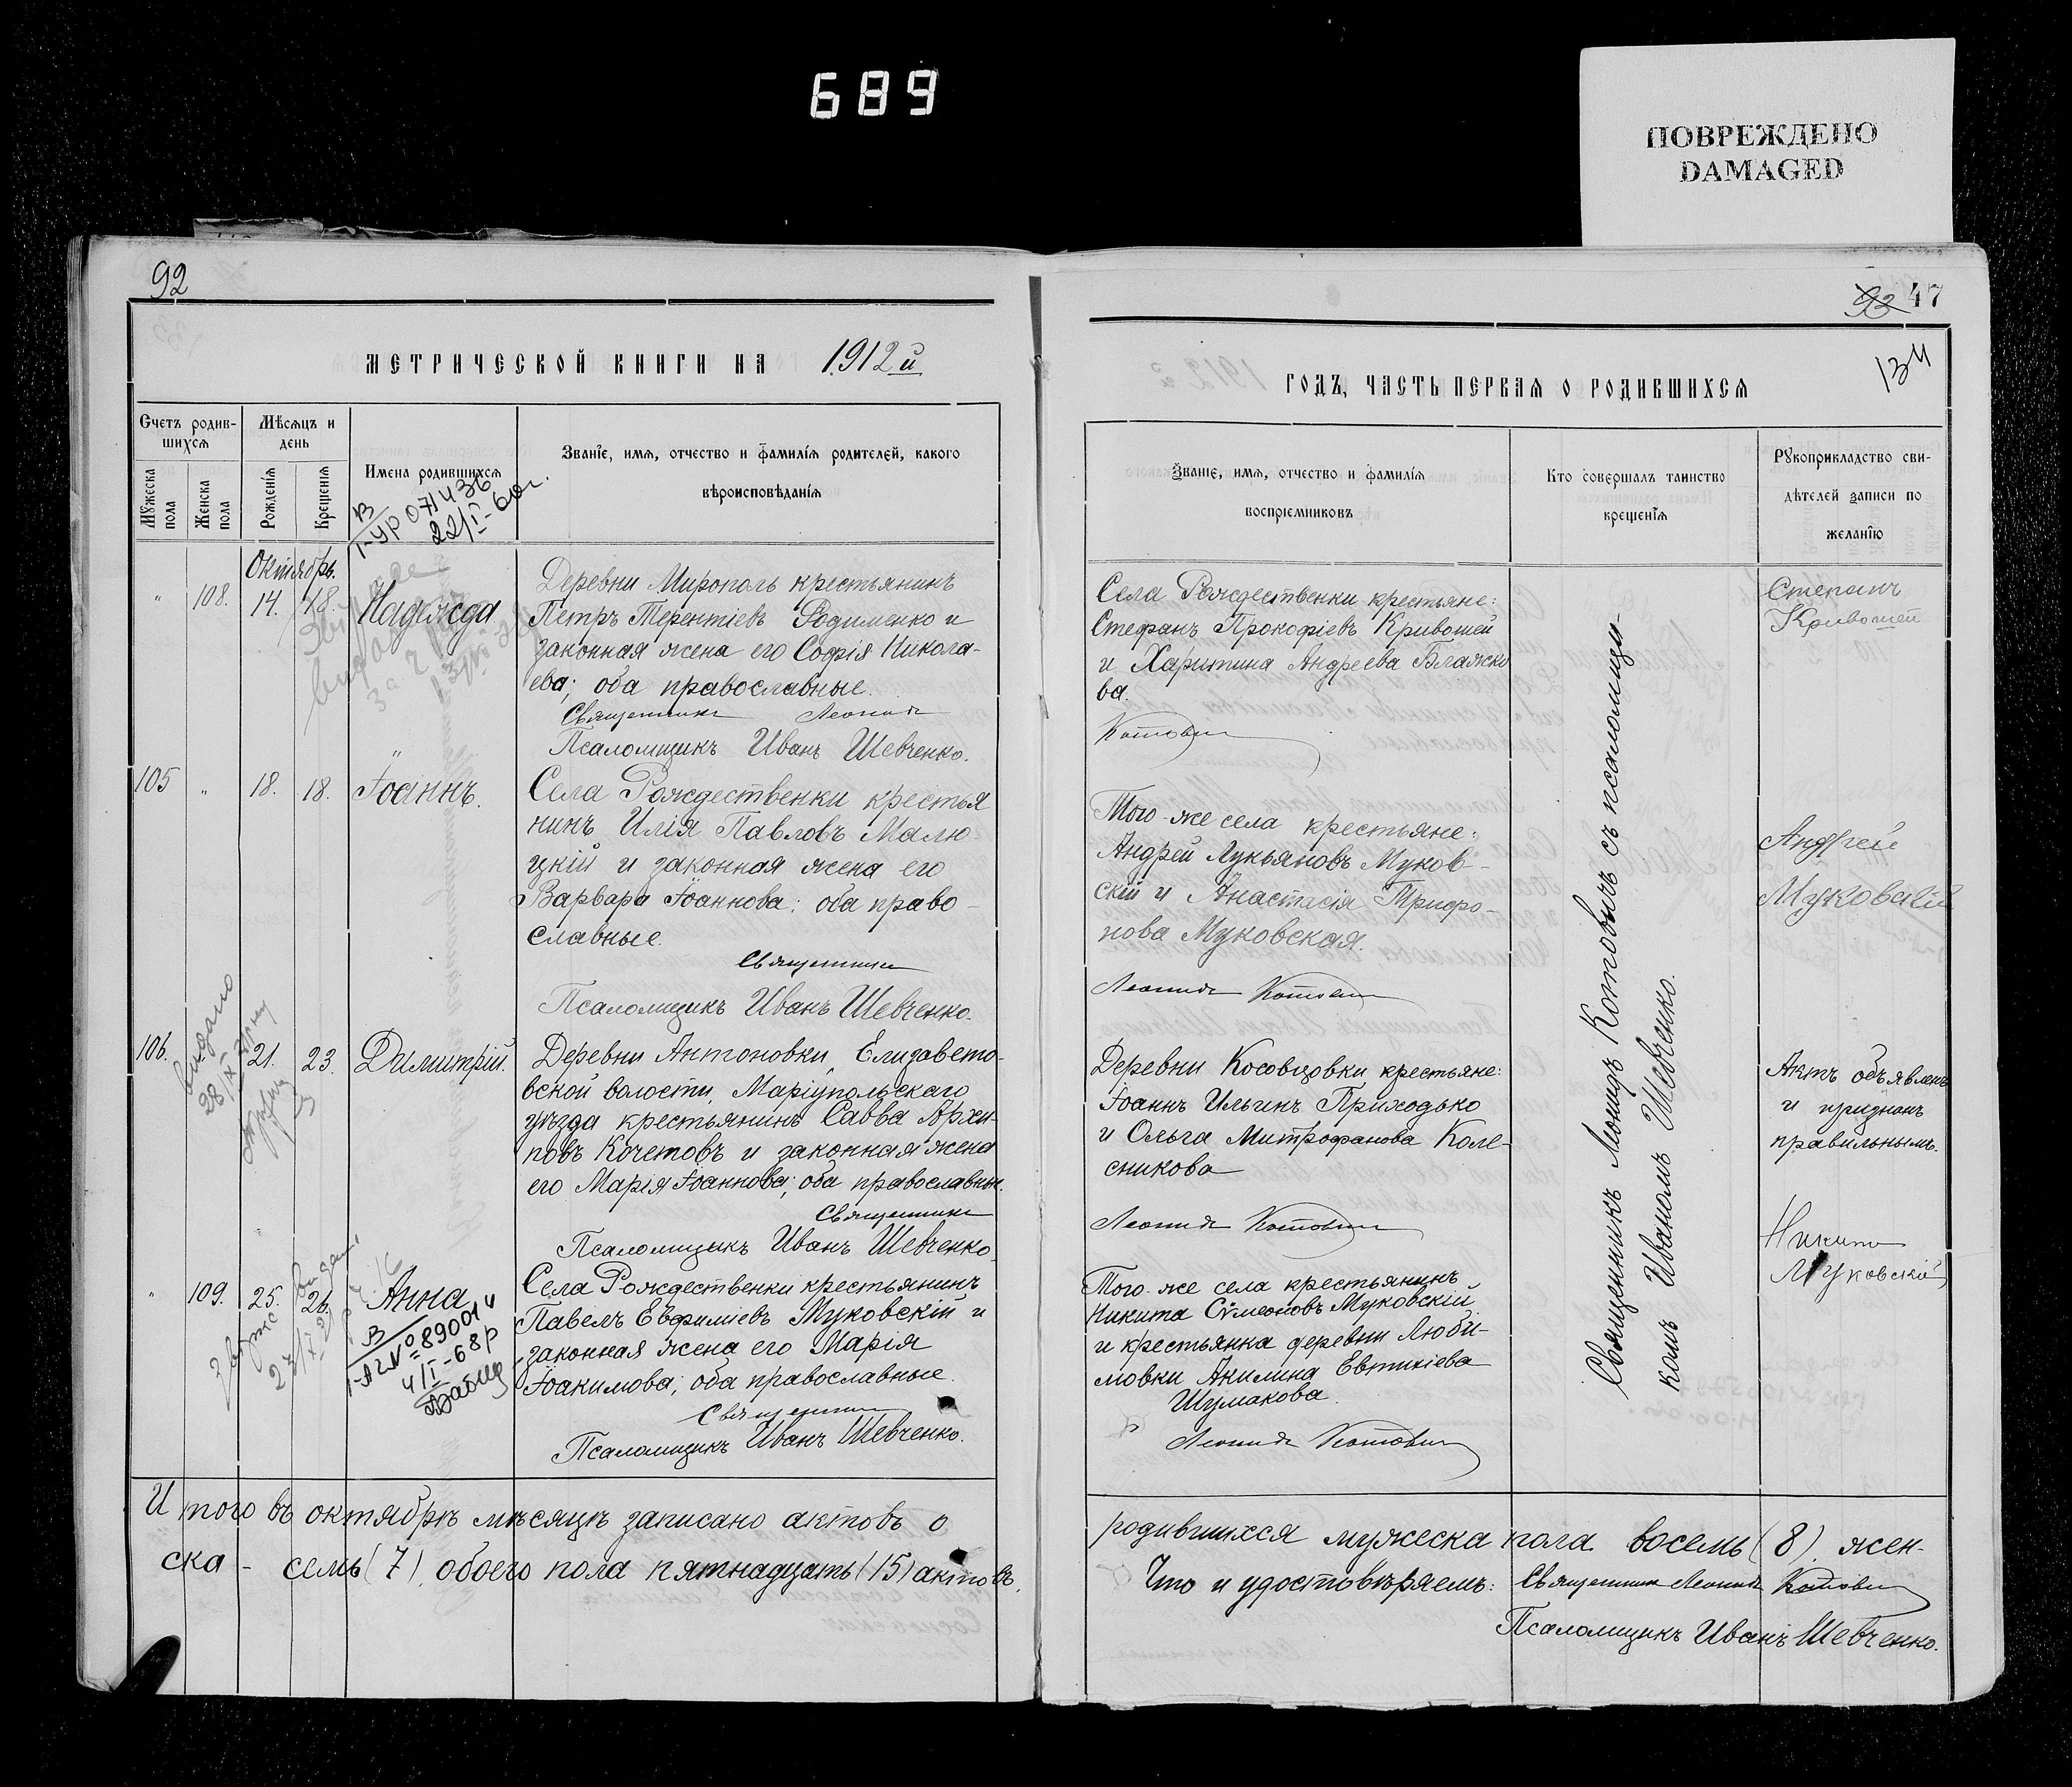 689
ПОВРЕЖДЕНО
DAMAGED
92
МЕТРИЧЕСКОЙ КНИГИ НА 1912 й
Счетъ родив-
шихся
Мѣсяцъ и
день
Мужеска
пола
Женска
пола
Рожденія
Крещенія
Имена родившихся
Званіе, имя, отчество и фамилія родителей, какого
вѣроисповѣданія
В
I-УР 071436
22/I-60г.
Октябрь.
" 108. 14. 18. Надежда
Деревни Мирополь крестьянинъ
Петръ Терентіевъ Родименко и
законная жена его Софія Никола-
ева; оба православные.
Священникъ Леонидъ
Псаломщикъ Иванъ Шевченко.
105 " 18. 18. Іоаннъ.
Села Рождественки крестья
нинъ Илія Павловъ Малю-
цкій и законная жена его
Варвара Іоаннова: оба право-
славные.
Священникъ
Псаломщикъ Иванъ Шевченко.
106. 21. 23. Димитрій.
видано
28/IX
Деревни Антоновки, Елизавето-
вской волости, Маріупольскаго
уѣзда крестьянинъ Савва Архи-
повъ Кочетовъ и законная жена
его Марія Іоаннова; оба православны.
Священникъ
Псаломщикъ Иванъ Шевченко
" 109. 25. 26. Анна
видано
В
I-АГ № 890014
4/I-68р
Села Рождественки крестьянинъ
Павелъ Евфиміевъ Муковскій и
законная жена его Марія
Іоакимова; оба православные.
Священникъ
Псаломщикъ Иванъ Шевченко.
Итого въ октябрѣ мѣсяцѣ записано актовъ о
ска - семь (7). обоего пола пятнадцать (15) актовъ.
93 47
134
ГОДЪ, ЧАСТЬ ПЕРВАЯ О РОДИВШИХСЯ
Званіе, имя, отчество и фамилія
воспріемниковъ
Кто совершалъ таинство
крещенія
Рукоприкладство сви-
дѣтелей записи по
желанію
Села Рождественки крестьяне:
Стефанъ Прокофіевъ Кривошей
и Харитина Андреева Блажко
ва.
Котовичъ
Степанъ
Кривошей
Того-же села крестьяне:
Андрей Лукьяновъ Муков-
скій и Анастасія Трифо-
нова Муковская.
Леонидъ Котовичъ
Андрей
Муковскій
Деревни Косовцовки крестьяне:
Іоаннъ Ильинъ Приходько
и Ольга Митрофанова Коле-
сникова
Леонидъ Котовичъ
Актъ объявленъ
и признанъ
правильнымъ.
Того же села крестьянинъ
Никита Сѵмеоновъ Муковскій
и крестьянка деревни Люби-
мовки Акилина Евтихіева
Шумакова.
Леонидъ Котовичъ
Никита
Муковскій
Священникъ Леонидъ Котовичъ съ псаломщи-
комъ Иваномъ Шевченко.
родившихся мужеска пола восемь (8). жен-
Что и удостовѣряемъ: Священникъ Леонидъ Котовичъ
Псаломщикъ Иванъ Шевченко.